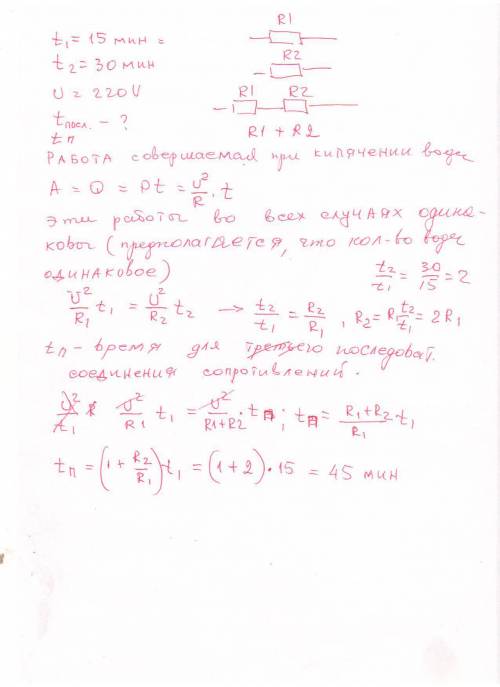 t₁ = 15 мин =
R1
t₂ = 30 мин
R2
U = 220V
R1 R2
tпосл. - ?
tп
R1 + R2
Работа совершаемая при кипячении воды
A = Q = Pt = U²/R · t
Эти работы во всех случаях одина-
ковы (предполагается, что кол-во воды
одинаковое)
t₂/t₁ = 30/15 = 2
U²/R₁ t₁ = U²/R₂ t₂ → t₂/t₁ = R₂/R₁, R₂ = R₁ t₂/t₁ = 2R₁
tп - время для третьего последоват.
соединения сопротивлений.
U²/R1 t₁ = U²/R1+R2 · tп; tп = R₁+R₂/R₁ · t₁
tп = (1 + R₂/R₁) · t₁ = (1 + 2) · 15 = 45 мин